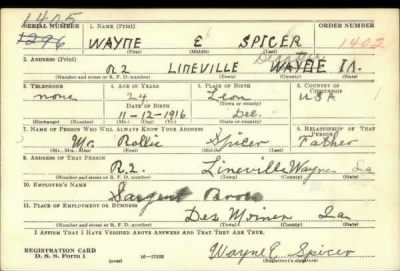 1405
SERIAL NUMBER 1. NAME (Print) ORDER NUMBER
1296 WAYNE E SPICER 1402
(First) (Middle) (Last)
2. ADDRESS (Print)
R2 LINEVILLE WAYNE IA.
(Number and street or R. F. D. number) (Town) (County) (State)
3. TELEPHONE 4. AGE IN YEARS 5. PLACE OF BIRTH 6. COUNTRY OF CITIZENSHIP
none 24 Leon USA
DATE OF BIRTH (Town or county)
11-12-1916 Dec.
(Exchange) (Number) (Mo.) (Day) (Yr.) (State or country)
7. NAME OF PERSON WHO WILL ALWAYS KNOW YOUR ADDRESS 8. RELATIONSHIP OF THAT PERSON
Mr. Rollie Spicer Father
(Mr., Mrs., Miss) (First) (Middle) (Last)
9. ADDRESS OF THAT PERSON
R.2. Lineville Wayne Ia
(Number and street or R. F. D. number) (Town) (County) (State)
10. EMPLOYER'S NAME
Sargent
11. PLACE OF EMPLOYMENT OR BUSINESS
Des Moines Ia
(Number and street or R. F. D. number) (Town) (County) (State)
I AFFIRM THAT I HAVE VERIFIED ABOVE ANSWERS AND THAT THEY ARE TRUE.
REGISTRATION CARD
D. S. S. Form 1 (over) Wayne E Spicer
(Registrant's signature)